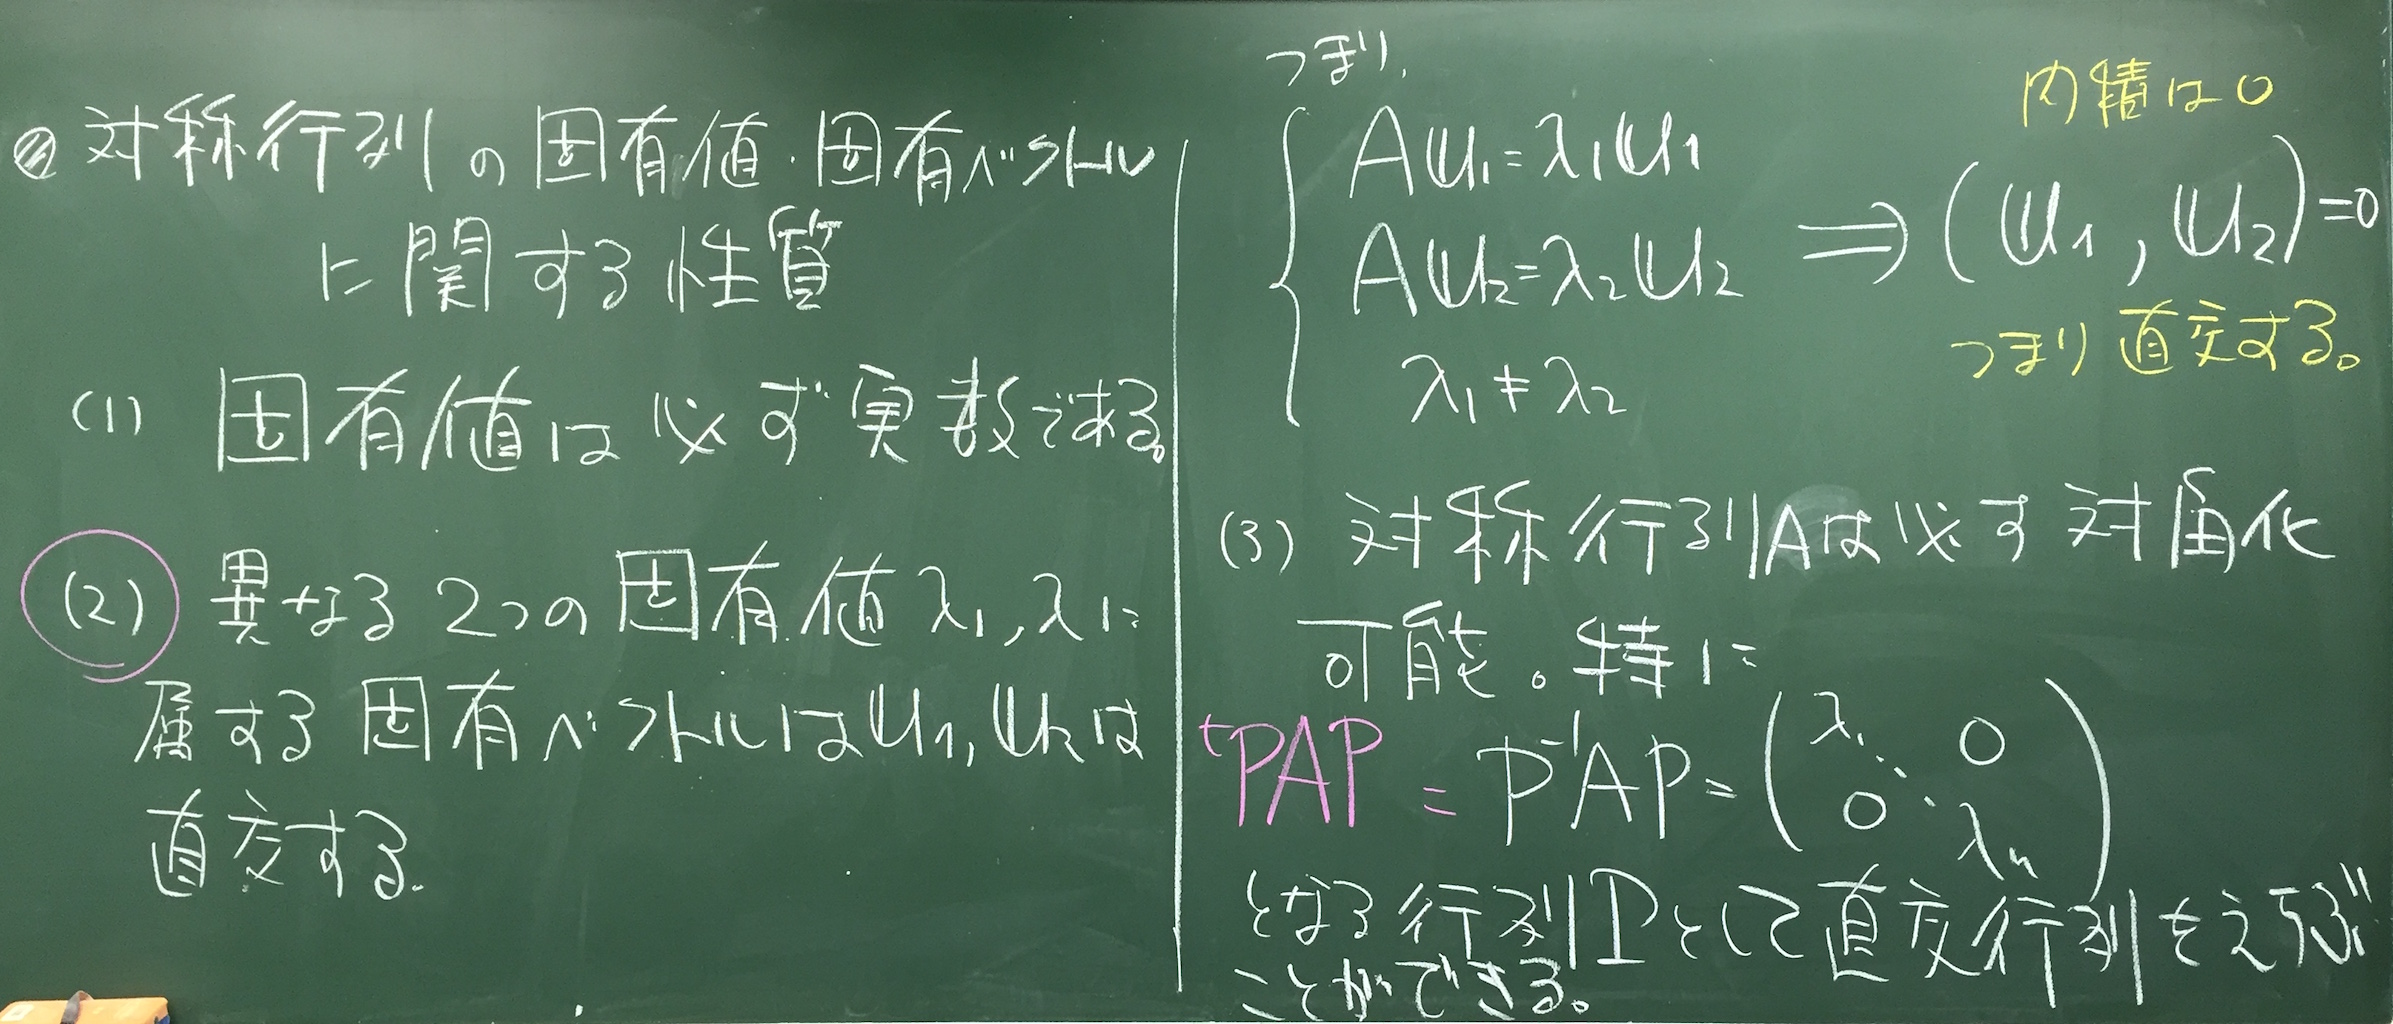 対称行列の固有値・固有ベクトル
に関する性質
(1) 固有値は必ず実数である。
(2) 異なる2つの固有値λ₁,λに
属する固有ベクトルはu₁,u₂は
直交する.
つまり,
Au₁=λ₁u₁
Au₂=λ₂u₂
λ₁≠λ₂
⟹(u₁,u₂)=0
内積は0
つまり直交する。
(3) 対称行列Aは必ず対角化
可能。特に
ᵗPAP = P⁻¹AP = (λ₁ ⋱ λₙ, 0, 0)
となる行列Pとして直交行列をえらぶ
ことができる。